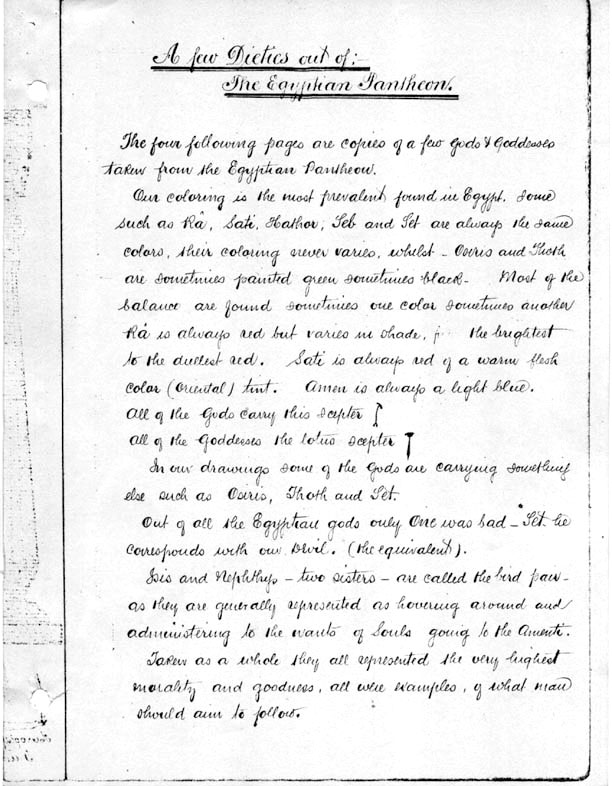 A few Dieties out of:-
The Egyptian Pantheon.
The four following pages are copies of a few Gods & Goddesses
taken from the Egyptian Pantheon.
Our coloring is the most prevalent found in Egypt. Some
such as Râ, Sati, Hathor, Seb and Set are always the same
colors, their coloring never varies, whilst - Osiris and Thoth
are sometimes painted green sometimes black - Most of the
balance are found sometimes one color sometimes another
Râ is always red but varies in shade, the brightest
to the dullest red. Sati is always red of a warm flesh
color (Oriental) tint. Amen is always a light blue.
All of the Gods carry this scepter
All of the Goddesses the lotus scepter
In our drawings some of the Gods are carrying something
else such as Osiris, Thoth and Set.
Out of all the Egyptian gods only One was bad - Set. he
corresponds with our Devil. (the equivalent).
Isis and Nephthys - two sisters - are called the bird pair -
as they are generally represented as hovering around and
administering to the wants of Souls going to the Amenti.
Taken as a whole they all represented the very highest
morality and goodness, all were examples, of what man
should aim to follow.